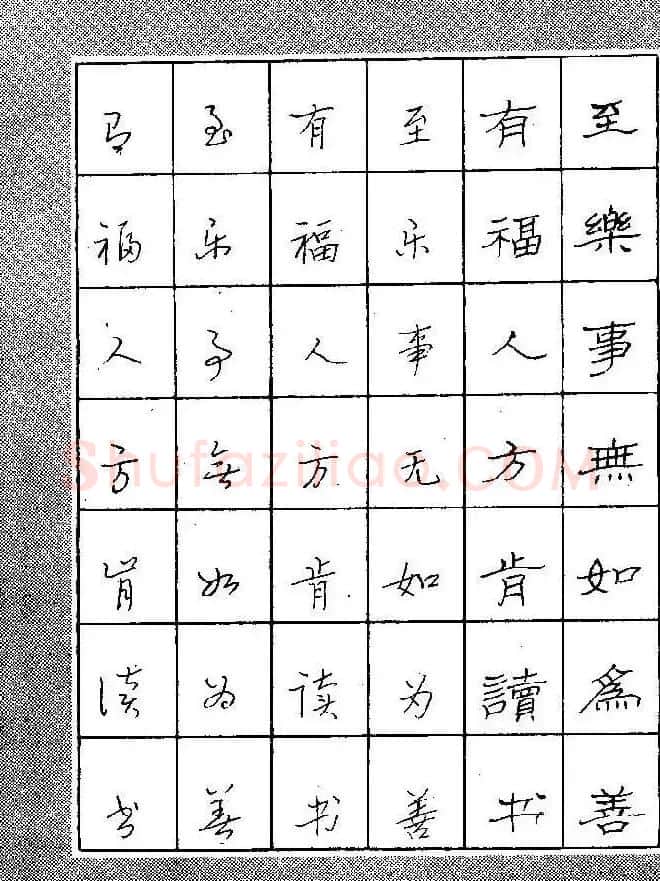 至樂事無如爲善
有福人方肯讀书
至乐事无如为善
有福人方肯读书
至乐事無如为善
有福人方肯读书
Shufaziliao.COM